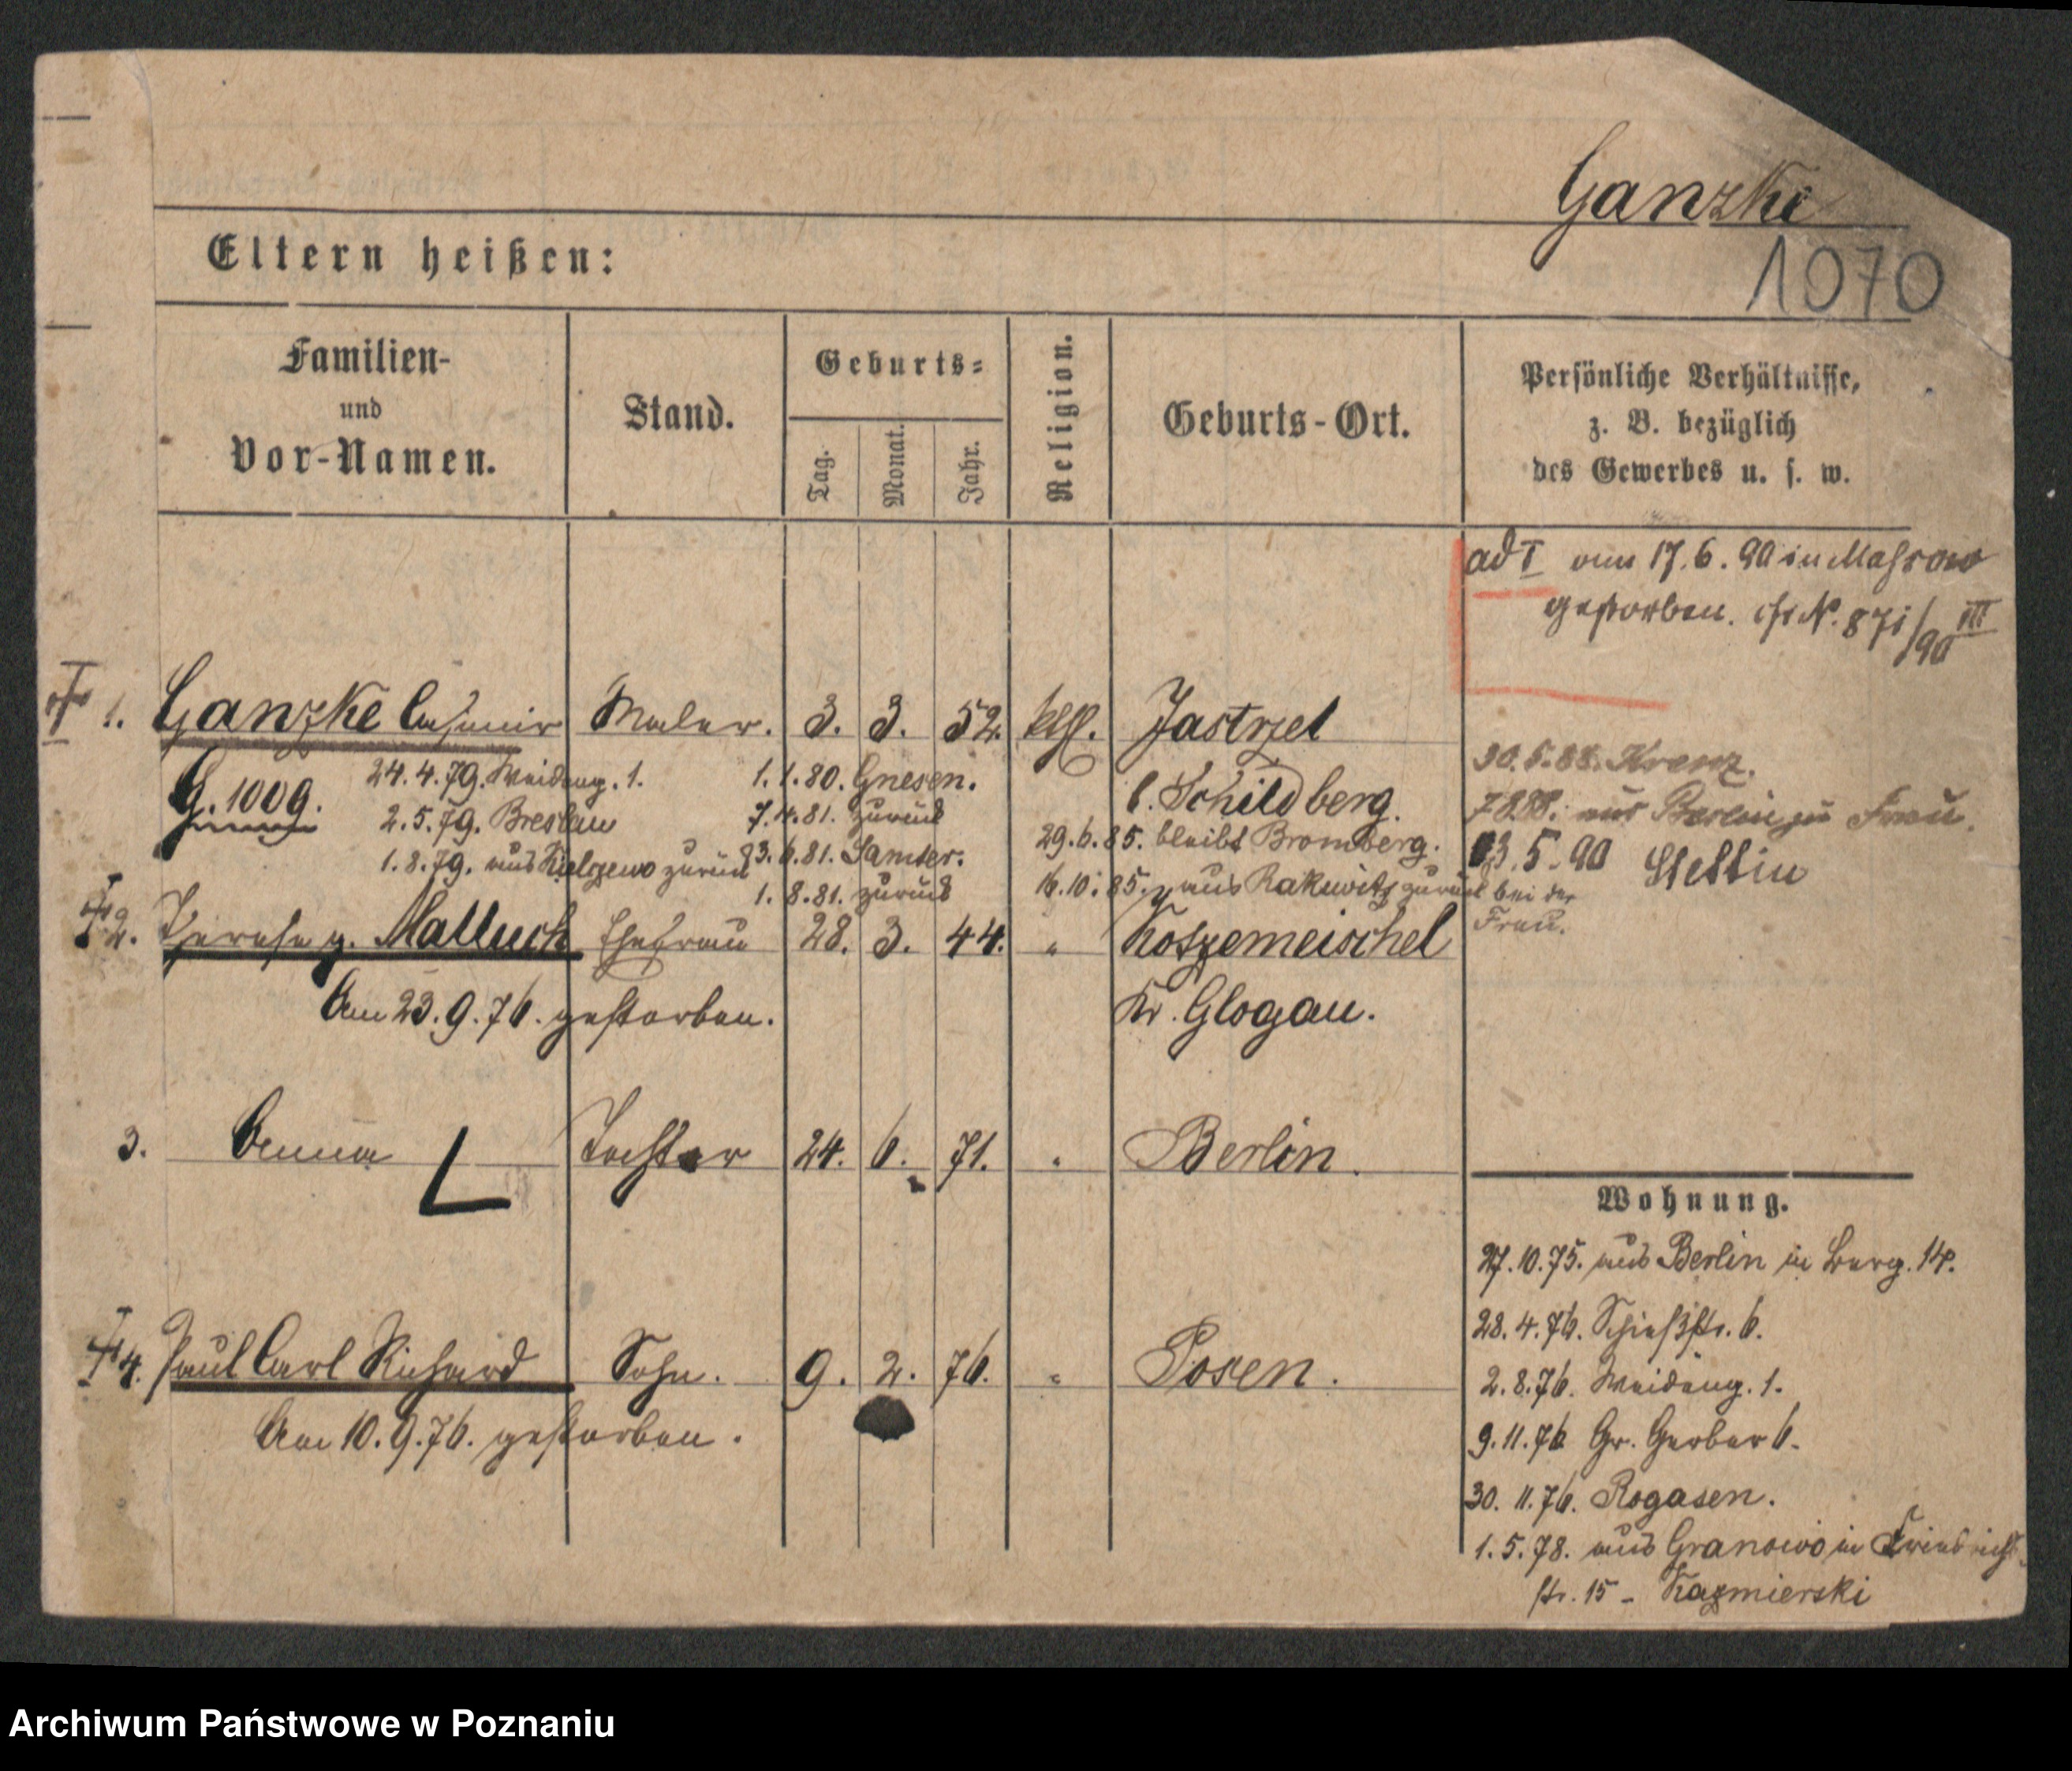 Ganzke
1070
Eltern heißen:
Familien-
und
Vor-Namen.
Stand.
Geburts-
Tag.
Monat.
Jahr.
Religion.
Geburts-Ort.
Persönliche Verhältnisse,
z. B. bezüglich
des Gewerbes u. s. w.
ad I am 17.6.90 in
gestorben. N. 871/90 III
I 1. Ganzke Casimir Maler. 3. 3. 52. kth. Jastrzel
b. Schildberg.
G. 1009.
24.4.79. Weideng. 1.
2.5.79. Breslau
1.8.79. aus zurück
1.1.80. Gnesen.
7.4.81. zurück
23.6.81. Samter.
1.8.81. zurück
29.6.85. bleibt Bromberg.
16.10.85. aus Rakwitz zurück bei der
Frau.
30.5.88. Krenz.
7.8.88. aus Berlin zu Frau.
13.5.90 Stettin
2. Therese g. Malluch Ehefrau 28. 3. 44. " Kotzemeischel
Kr. Glogau.
Am 23.9.76. gestorben.
3. Anna Tochter 24. 6. 71. " Berlin.
4. Paul Carl Richard Sohn. 9. 2. 76. " Posen.
Am 10.9.76. gestorben.
Wohnung.
27.10.75. aus Berlin in Berg. 14.
28.4.76. Schießstr. 6.
2.8.76. Weideng. 1.
9.11.76 Gr. Gerber 6.
30.11.76. Rogasen.
1.5.78. aus Granowo in Friedrich
str. 15 - Kazmierski
Archiwum Państwowe w Poznaniu